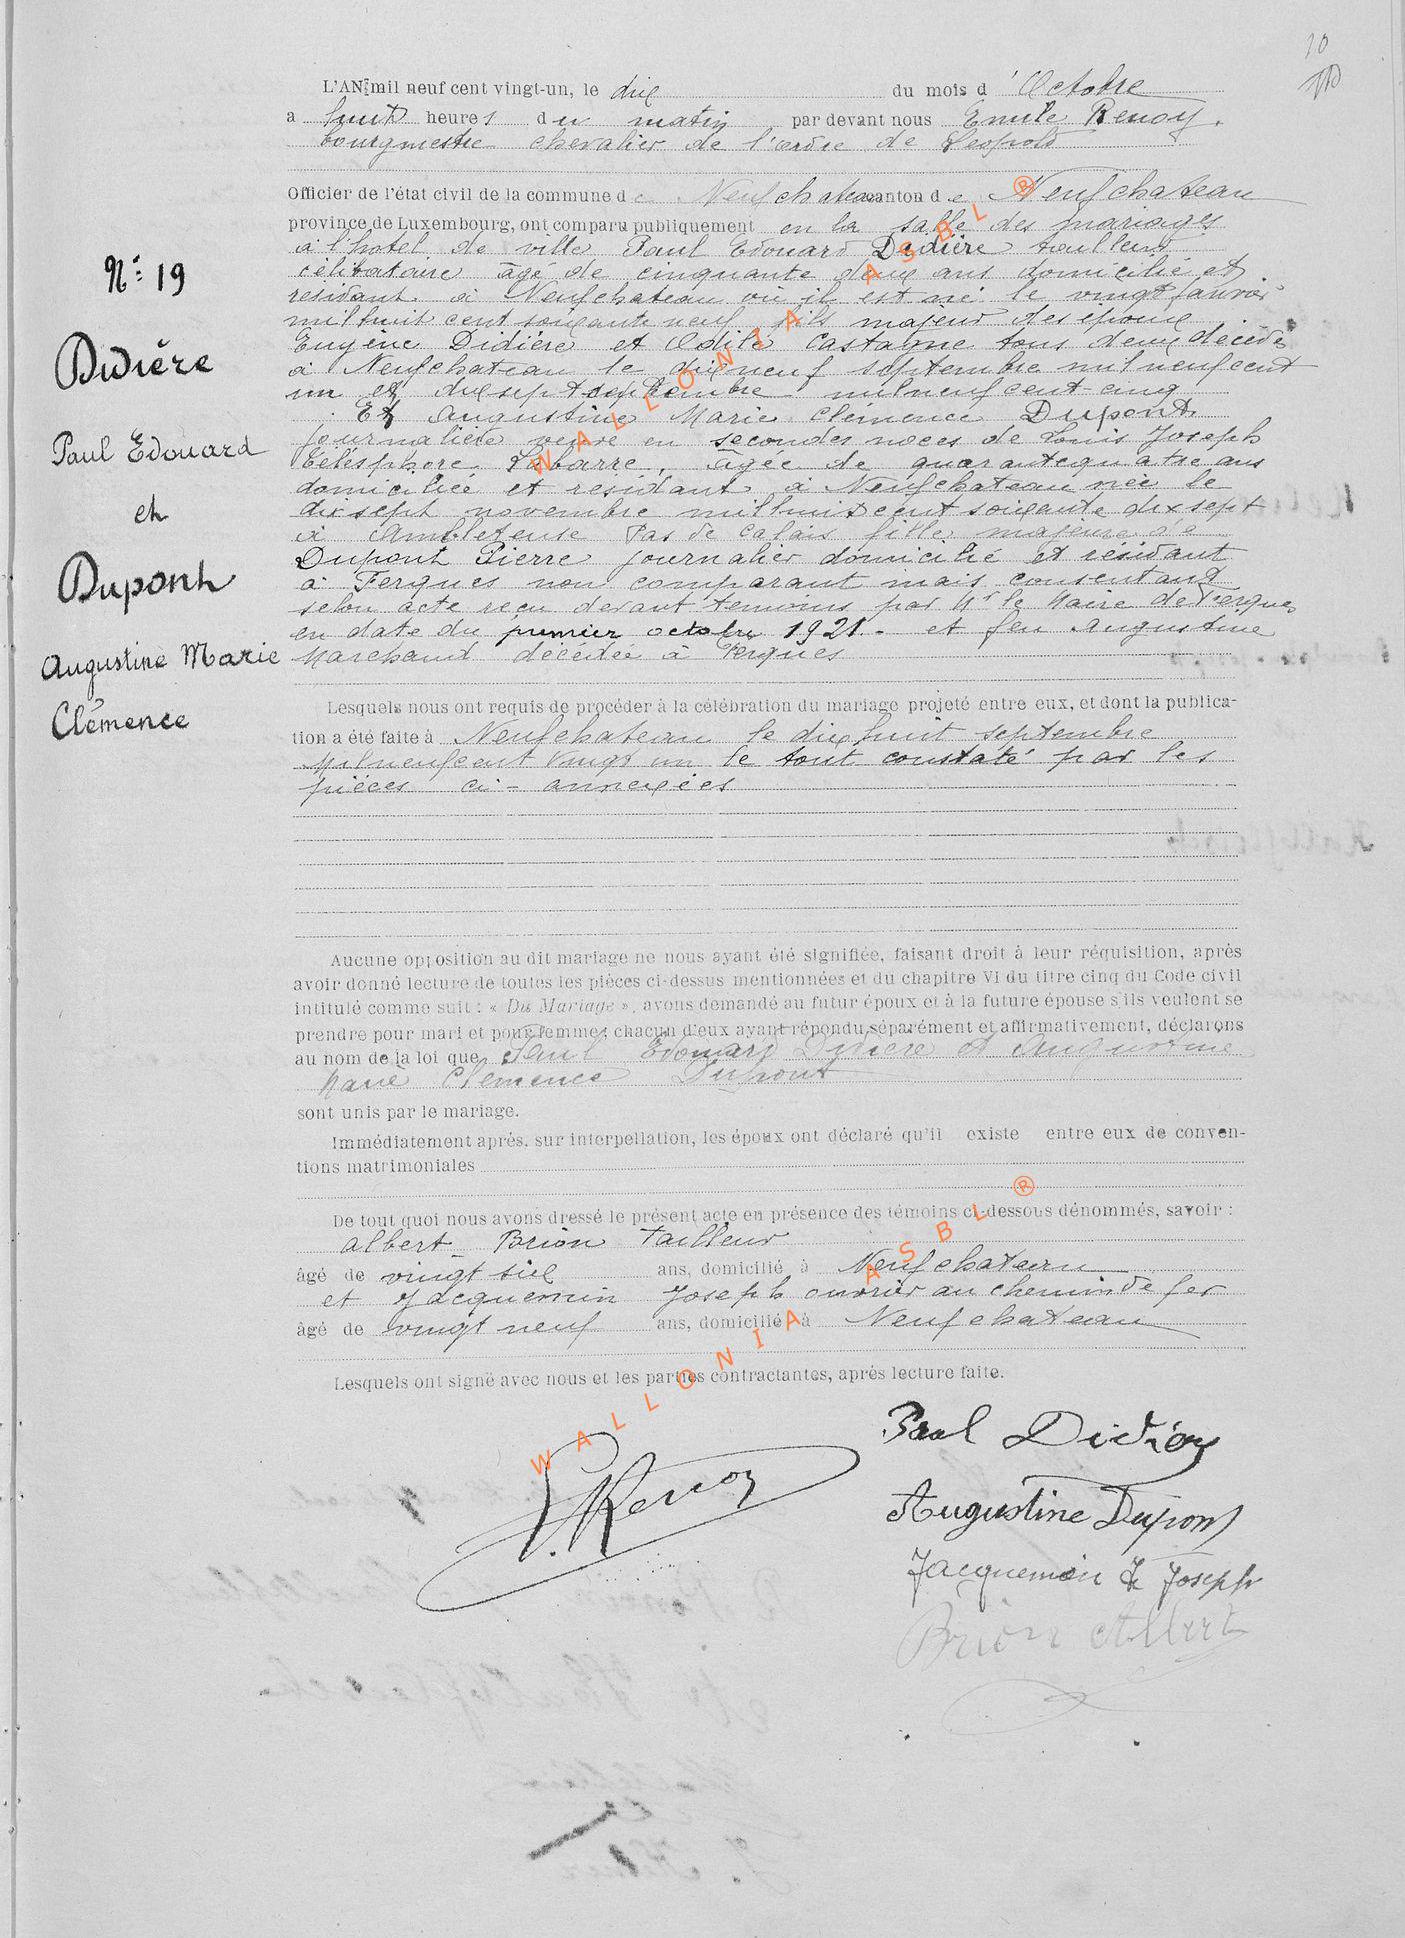 10
L'AN mil neuf cent vingt-un, le dix du mois d'Octobre
a huit heures du matin par devant nous Emile Renoy,
bourgmestre chevalier de l'ordre de Léopold
Officier de l'état civil de la commune de Neufchateau canton de Neufchateau
province de Luxembourg, ont comparu publiquement en la salle des mariages
à l'hotel de ville Paul Edouard Didière tailleur
célibataire âgé de cinquante deux ans domicilié et
résidant à Neufchateau où il est né le vingt janvier
mil huit cent soixante neuf fils majeur des époux
Eugène Didière et Odile Castagne tous deux décédés
à Neufchateau le dix neuf septembre mil neuf cent
un et dix sept septembre mil neuf cent cinq
Et Augustine Marie Clémence Dupont
journalière veuve en secondes noces de Louis Joseph
Télésphore Labarre, âgée de quarante quatre ans
domiciliée et résidant à Neufchateau née le
dix sept novembre mil huit cent soixante dix sept
à Ambleteuse Pas de Calais fille majeure de
Dupont Pierre journalier domicilié et résidant
à Ferques non comparant mais consentant
selon acte reçu devant temoins par Mr le Maire de Ferques
en date du premier octobre 1921 - et feu Augustine
Marchand décédée à Ferques
Nº 19
Didière
Paul Edouard
et
Dupont
Augustine Marie
Clémence
Lesquels nous ont requis de procéder à la célébration du mariage projeté entre eux, et dont la publica-
tion a été faite à Neufchateau le dix huit septembre
Mil neuf cent vingt un le tout constaté par les
pièces ci-annexées
Aucune opposition au dit mariage ne nous ayant été signifiée, faisant droit à leur réquisition, après
avoir donné lecture de toutes les pièces ci-dessus mentionnées et du chapitre VI du titre cinq du Code civil
intitulé comme suit : « Du Mariage », avons demandé au futur époux et à la future épouse s'ils veulent se
prendre pour mari et pour femme ; chacun d'eux ayant répondu séparément et affirmativement, déclarons
au nom de la loi que Paul Edouard Didière et Augustine
Marie Clémence Dupont
sont unis par le mariage.
Immédiatement après, sur interpellation, les époux ont déclaré qu'il existe entre eux de conven-
tions matrimoniales
De tout quoi nous avons dressé le présent acte en présence des témoins ci-dessous dénommés, savoir :
Albert Brion tailleur
âgé de vingt six ans, domicilié à Neufchateau
et Jacquemin Joseph ouvrier au chemin de fer
âgé de vingt neuf ans, domicilié à Neufchateau
Lesquels ont signé avec nous et les parties contractantes, après lecture faite.
Paul Didière
E. Renoy
Augustine Dupont
Jacquemin Joseph
Brion Albert
WALLONIA ASBL ®
WALLONIA ASBL ®